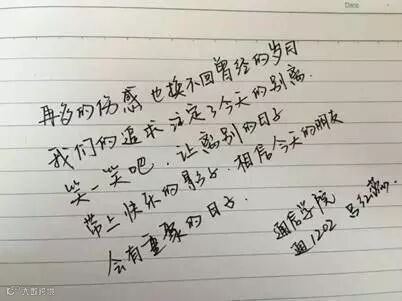 Date
再多的伤感也换不回曾经的岁月
我们的追求注定了今天的别离.
笑一笑吧.让离别的日子
带上快乐的影子.相信今天的朋友
会有重聚的日子.
通信学院
通1202 吕红